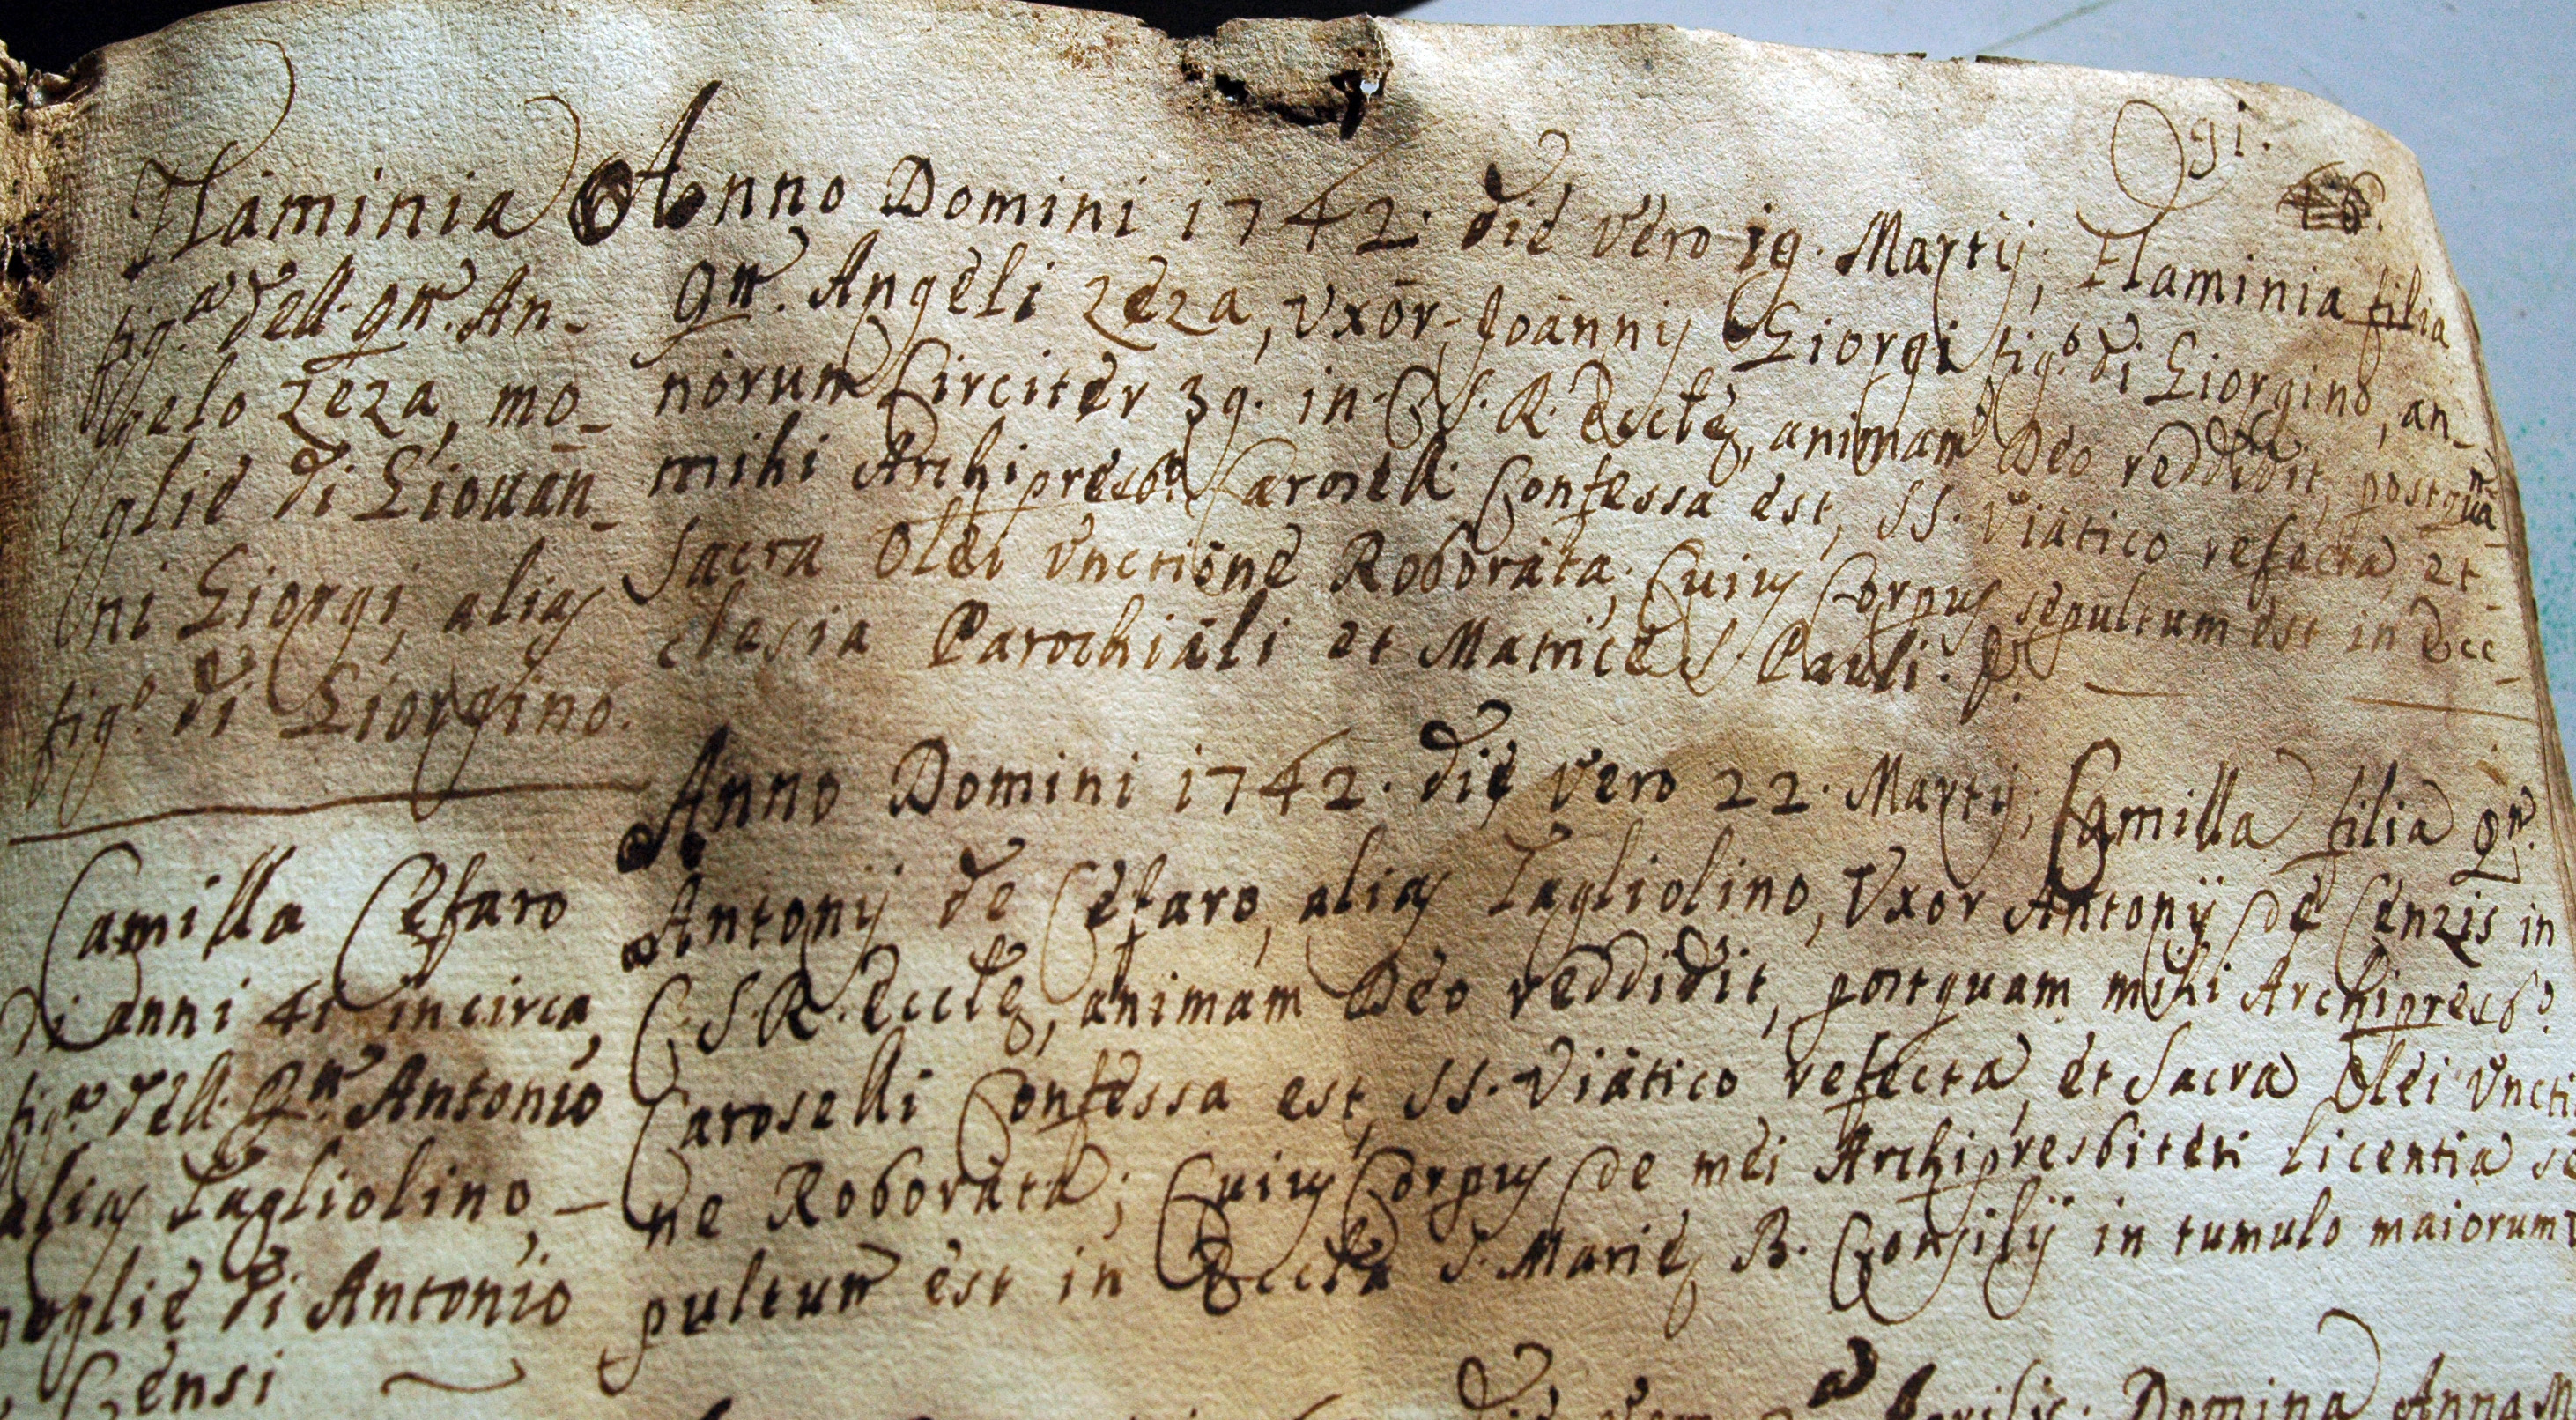 91.
Flaminia
fig.ª dell. qm. An-
gelo Zeza, mo-
glie di Giouan-
ni Giorgi, alias
fig.º di Giorgino.
Anno Domini 1742. die vero 19. Martij, Flaminia filia
qm. Angeli Zeza, Uxor Joannis Giorgi fig.º di Giorgino, an-
norum Circiter 39. in C. S. R. Ecclę, animam Deo reddidit, postquā
mihi Archipresb.º Caroselli Confessa est, SS. Viatico refecta, et
Sacra Olei Unctione Roborata, Cuius Corpus sepultum est in Ecc-
clesia Parochiali et Matrice S. Pauli.
Camilla Cefaro
di anni 41 incirca,
fig.ª dell. Qm. Antonio
alias Tagliolino, –
moglie di Antonio
Censi
Anno Domini 1742. die vero 22. Martij, Camilla filia qm.
Antonij de Cefaro, alias Tagliolino, Uxor Antonij de Cenzis in
C. S. R. Ecclę, animam Deo reddidit, postquam mihi Archipresb.º
Caroselli Confessa est, SS. Viatico refecta, et Sacra Olei Uncti
ne Roborata; Cuius Corpus de mei Archipresbiteri licentia se
pultum est in Eccla S. Marię B. Consilij in tumulo maiorum
Aprilis. Domina Anna M